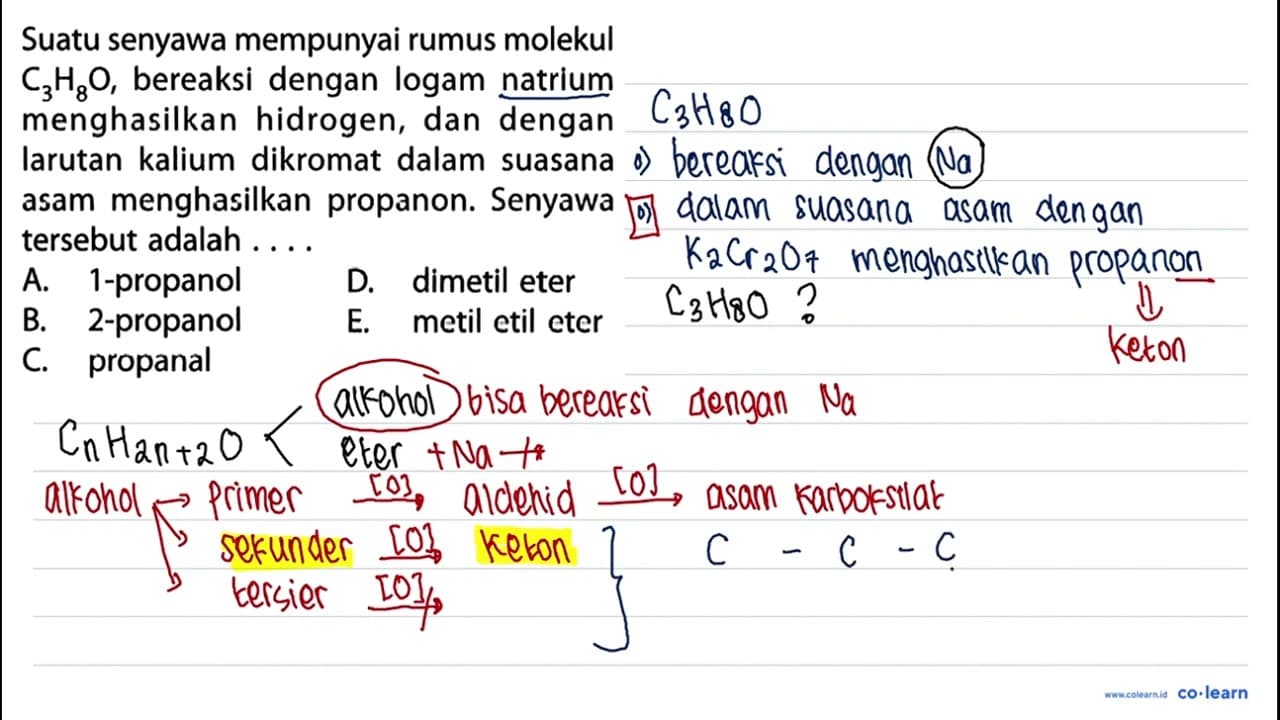 Suatu senyawa mempunyai rumus molekul
C₃H₈O, bereaksi dengan logam natrium
menghasilkan hidrogen, dan dengan
larutan kalium dikromat dalam suasana
asam menghasilkan propanon. Senyawa
tersebut adalah . . . .
A. 1-propanol D. dimetil eter
B. 2-propanol E. metil etil eter
C. propanal
C₃H₈O
o) bereaksi dengan Na
o) dalam suasana asam dengan
K₂Cr₂O₇ menghasilkan propanon
C₃H₈O ? ⇓
keton
CnH2n+2O < alkohol bisa bereaksi dengan Na
eter + Na ↛
alkohol → primer [O]→ aldehid [O]→ asam karboksilat
→ sekunder [O]→ keton } C - C - C
→ tersier [O]↛
www.colearn.id co·learn